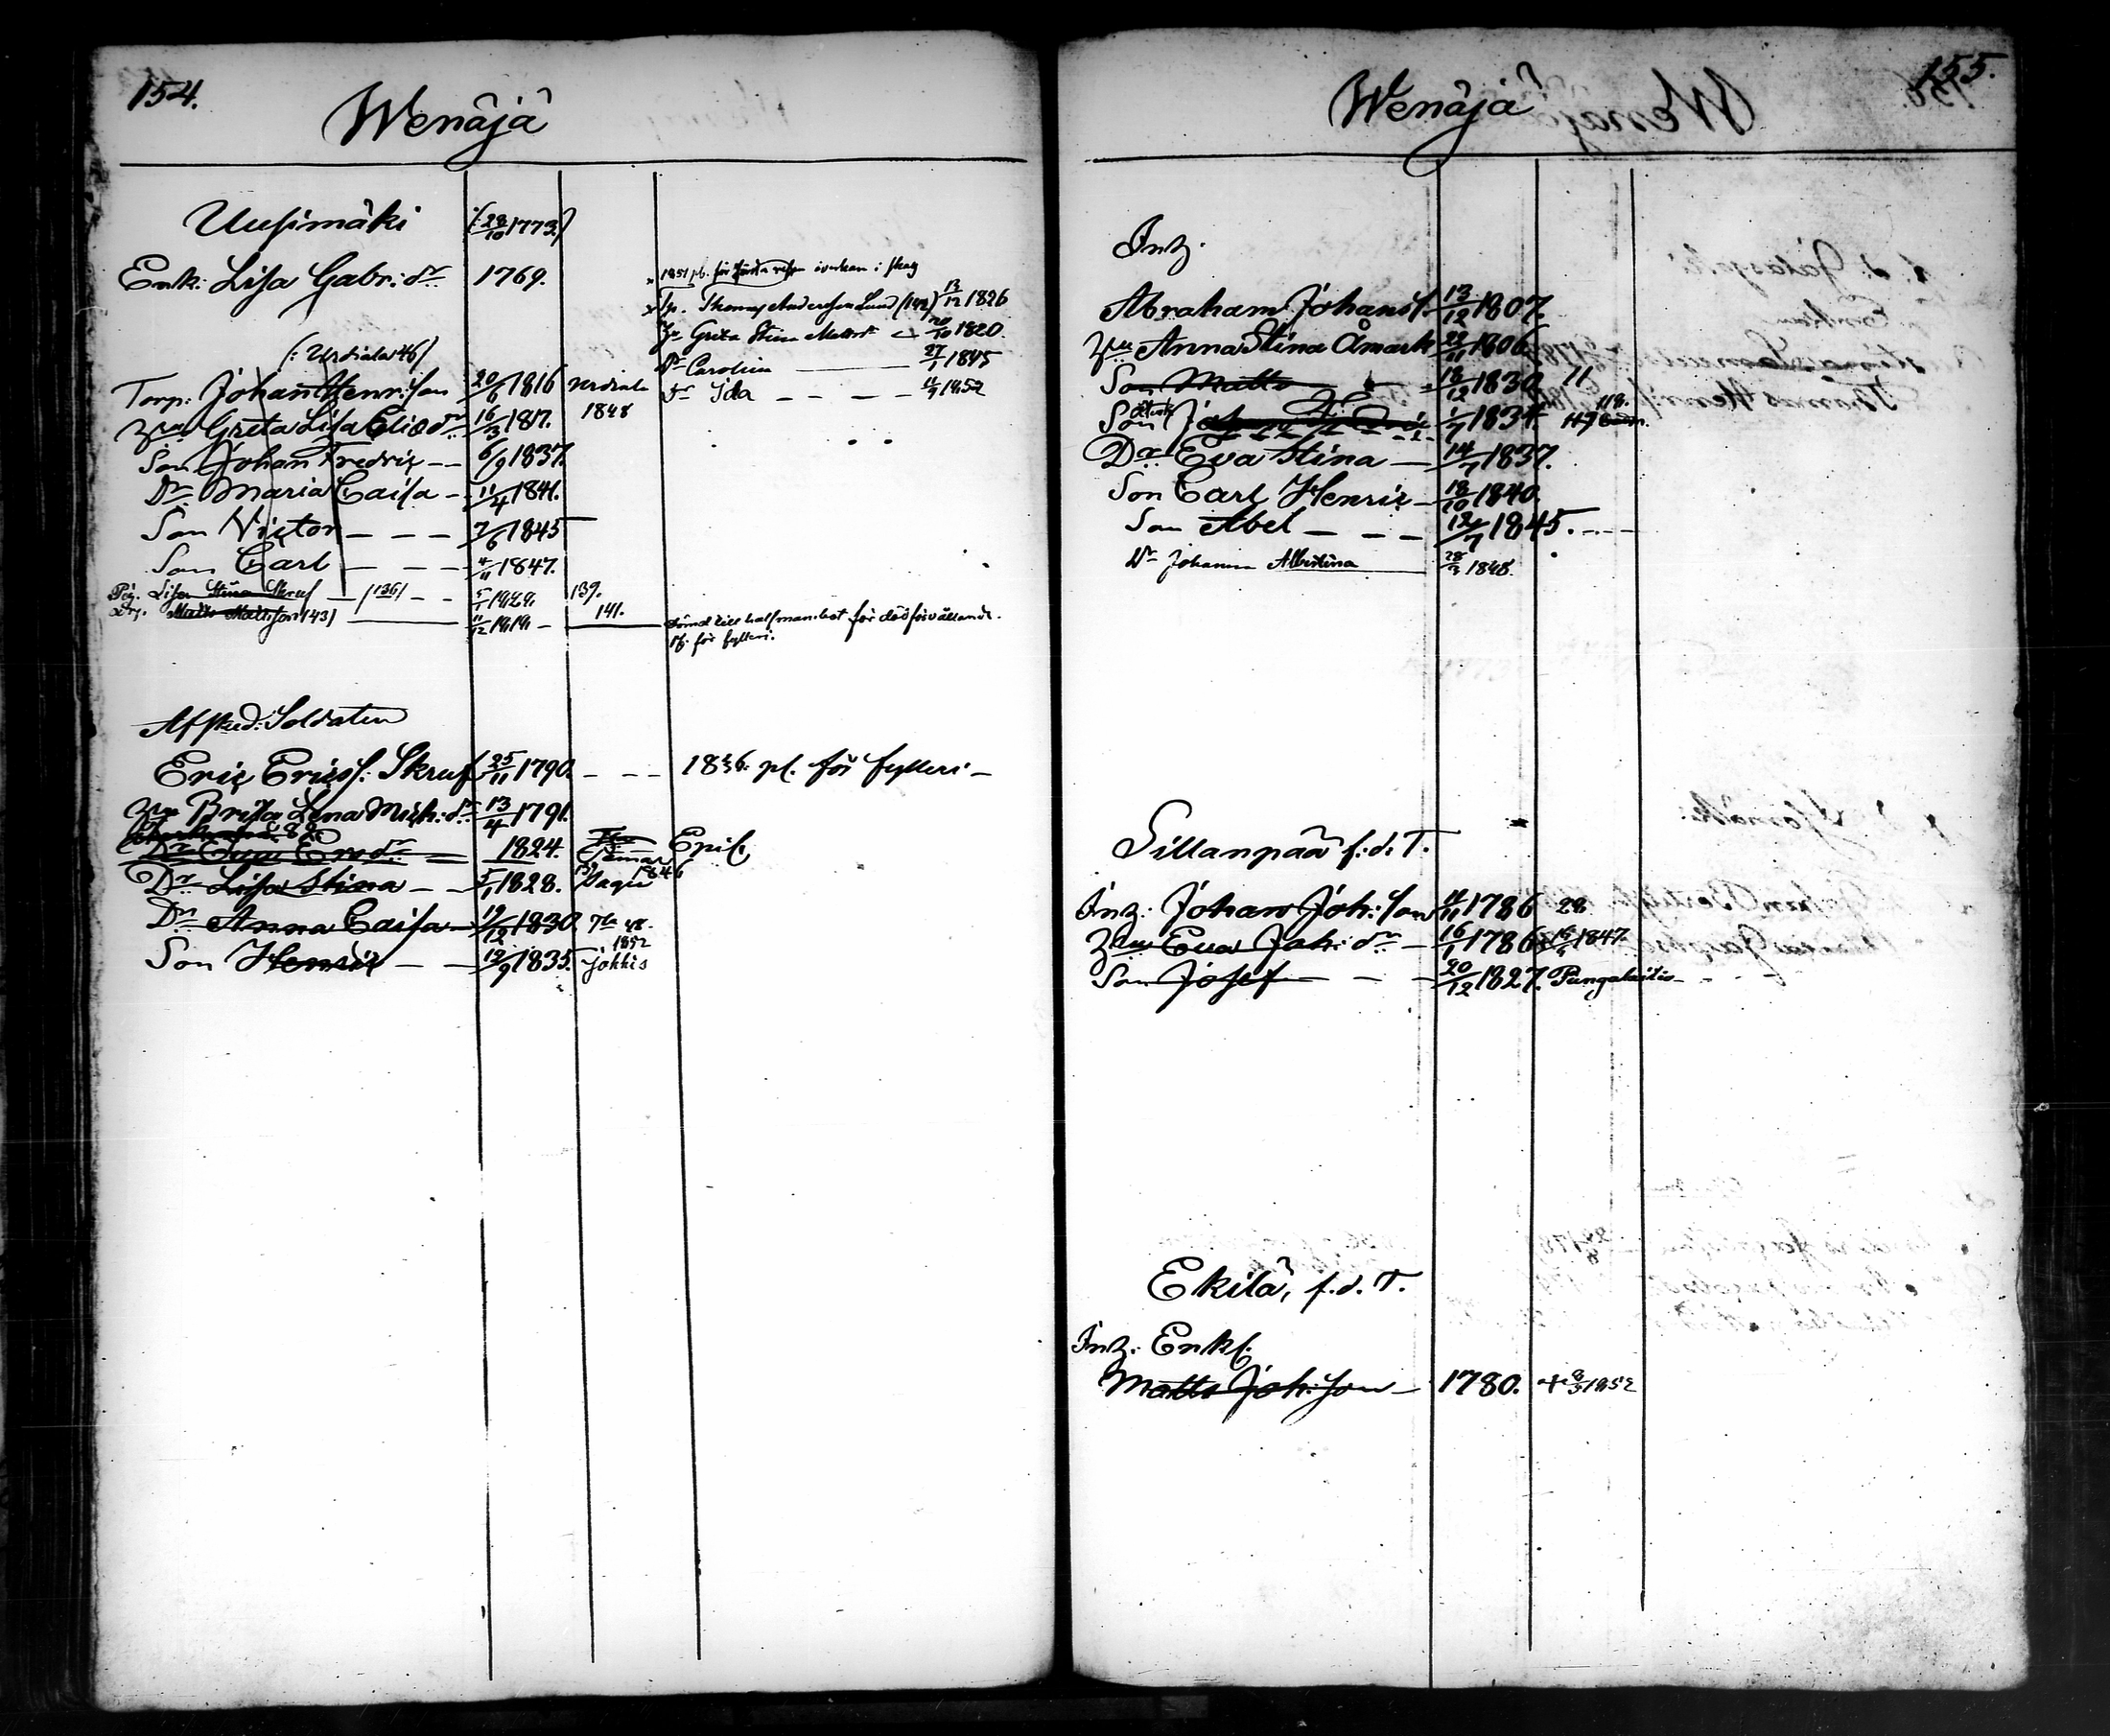 154.
Wenäjä
Uusimäki (28/10 1773.)
Enk: Lisa Gabr: dr 1769.
1851 pl. för första resan åverkan i skog
Thomas Andersson Lund (142) 13/12 1826
Hu Greta Stina Mattsdr 20/10 1820.
Dr Carolina 27/1 1845
Dr Ida 1852
(: Urdiala 46)
Torp: Johan Henricsson 20/6 1816 Urdiala
Hu Greta Lisa Eliaedr 16/3 1817. 1848
Son Johan Fredric 6/9 1837.
Dr Maria Caisa 11/4 1841.
Son Victor 7/6 1845
Son Carl 4/11 1847.
Pig. Lisa Stina Skruf (136) 5/1 1828. 139.
Drg. Matts Mattsson (143) 11/12 1818 141.
dömd till half mansbot för dödsvållande.
pl. för fylleri.
Afsked: Soldaten
Eric Ericss: Skruf 25/11 1790. 1836. pl. för fylleri
Hu Brita Lena Mich: dr 13/4 1791.
Dr Eva Ericsdr 1824. Epil.
Dr Lisa Stina 5/1 1828.
Dr Anna Caisa 19/12 1830. 48.
Son Henric 12/9 1835. 1852 Jokkis
155.
Wenäjä
Inh.
Abraham Johanss. 13/12 1807.
Hu Anna Stina Åmark 1806
Son Matts 18/12 1830 11
Son 1/7 1834. 118.
Dr Eva Stina 14/7 1837.
Son Carl Henric 18/10 1840.
Son Abel 12/7 1845.
Dr Johanna Albertina 28/3 1848.
Sillanpää f.d. T.
Inh: Johan Joh: son 1786 28
Hu Eva Joh: dr 16/1 1786 1847.
Son Josef 20/12 1827. Pungalaitio
Ekilä, f.d. T.
Inh. Enkl.
Matts Joh: son 1780. + 8/3 1852